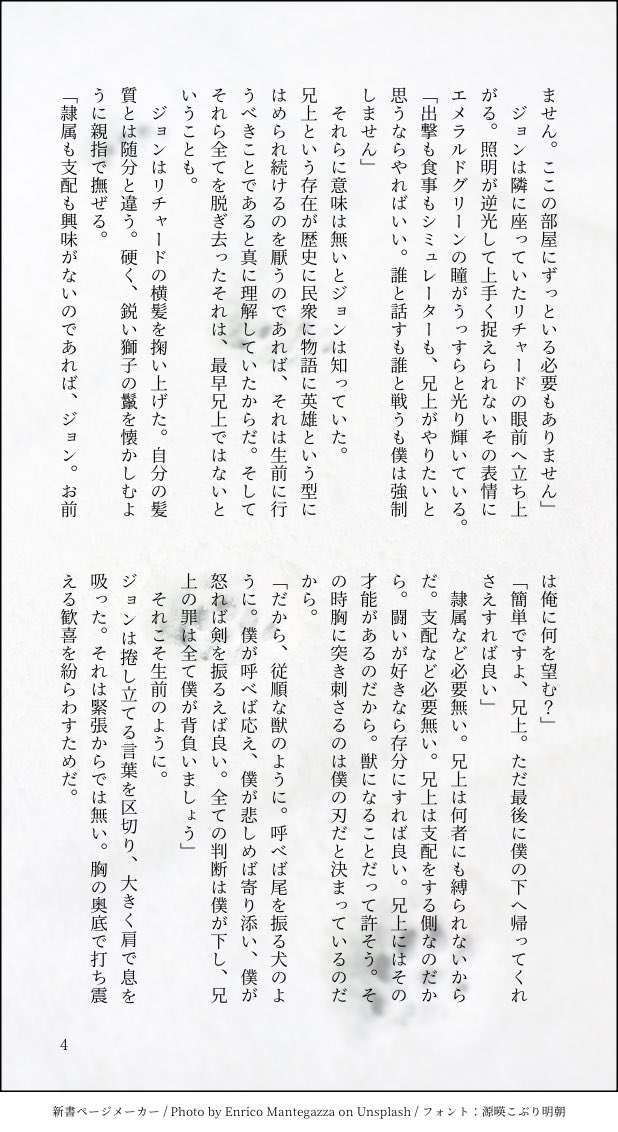 ません。ここの部屋にずっといる必要もありません」
　ジョンは隣に座っていたリチャードの眼前へ立ち上
がる。照明が逆光して上手く捉えられないその表情に
エメラルドグリーンの瞳がうっすらと光り輝いている。
「出撃も食事もシミュレーターも、兄上がやりたいと
思うならやればいい。誰と話すも誰と戦うも僕は強制
しません」
　それらに意味は無いとジョンは知っていた。
兄上という存在が歴史に民衆に物語に英雄という型に
はめられ続けるのを厭うのであれば、それは生前に行
うべきことであると真に理解していたからだ。そして
それら全てを脱ぎ去ったそれは、最早兄上ではないと
いうことも。
　ジョンはリチャードの横髪を掬い上げた。自分の髪
質とは随分と違う。硬く、鋭い獅子の鬣を懐かしむよ
うに親指で撫ぜる。
「隷属も支配も興味がないのであれば、ジョン。お前
は俺に何を望む？」
「簡単ですよ、兄上。ただ最後に僕の下へ帰ってくれ
さえすれば良い」
　隷属など必要無い。兄上は何者にも縛られないから
だ。支配など必要無い。兄上は支配をする側なのだか
ら。闘いが好きなら存分にすれば良い。兄上にはその
才能があるのだから。獣になることだって許そう。そ
の時胸に突き刺さるのは僕の刃だと決まっているのだ
から。
「だから、従順な獣のように。呼べば尾を振る犬のよ
うに。僕が呼べば応え、僕が悲しめば寄り添い、僕が
怒れば剣を振るえば良い。全ての判断は僕が下し、兄
上の罪は全て僕が背負いましょう」
　それこそ生前のように。
ジョンは捲し立てる言葉を区切り、大きく肩で息を
吸った。それは緊張からでは無い。胸の奥底で打ち震
える歓喜を紛らわすためだ。
4
新書ページメーカー / Photo by Enrico Mantegazza on Unsplash / フォント：源暎こぶり明朝